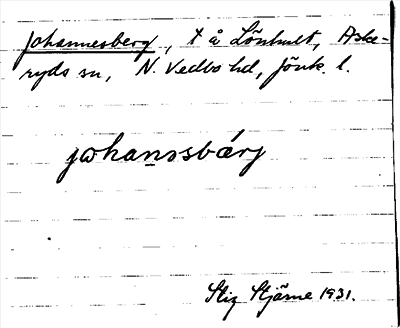 Johannesberg, t å Lönhult, Aske-
ryds sn, N. Vedbo hd, Jönk. l.
johanɔsbárj
Stig Stjärne 1931.